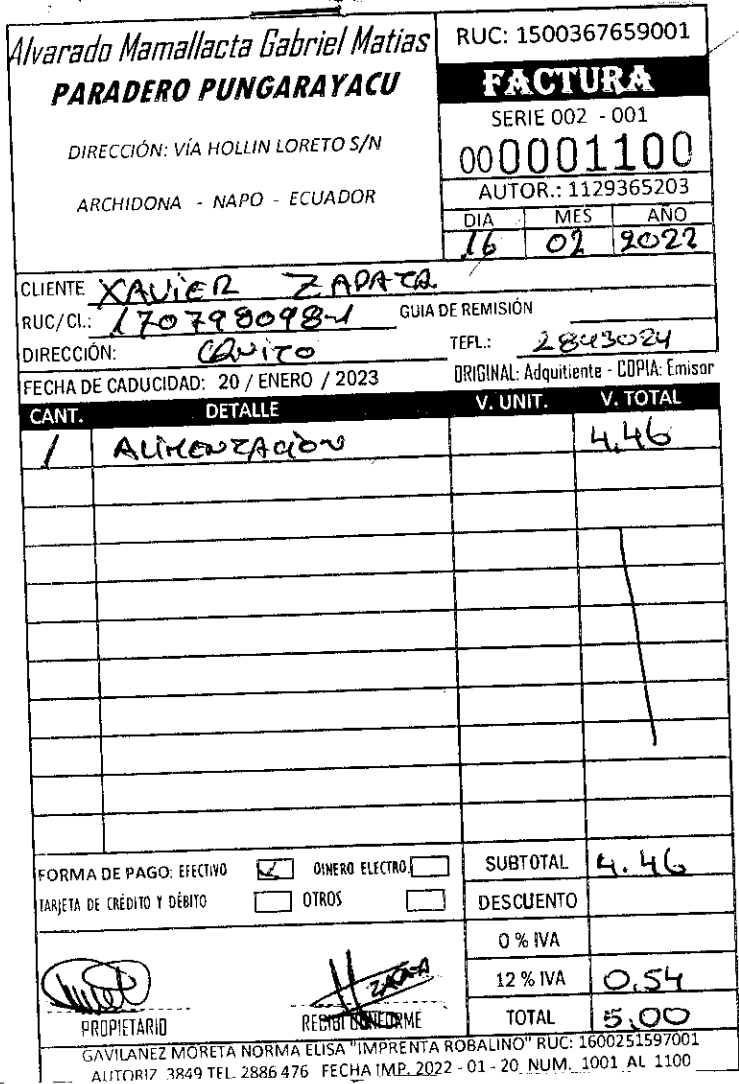 Alvarado Mamallacta Gabriel Matias
PARADERO PUNGARAYACU
DIRECCIÓN: VÍA HOLLIN LORETO S/N
ARCHIDONA - NAPO - ECUADOR
RUC: 1500367659001
FACTURA
SERIE 002 - 001
000001100
AUTOR.: 1129365203
DIA MES AÑO
16 02 2022
CLIENTE XAVIER ZAPATA
RUC/CI.: 170798098-1 GUIA DE REMISIÓN
DIRECCIÓN: QUITO TEFL.: 2843024
FECHA DE CADUCIDAD: 20 / ENERO / 2023 ORIGINAL: Adquitiente - COPIA: Emisor
CANT. DETALLE V. UNIT. V. TOTAL
1 ALIMENTACION 4.46
FORMA DE PAGO: EFECTIVO DINERO ELECTRO. SUBTOTAL 4.46
TARJETA DE CRÉDITO Y DÉBITO OTROS DESCUENTO
0 % IVA
12 % IVA 0.54
ZAPATA
PROPIETARIO RECIBI CONFORME TOTAL 5.00
GAVILANEZ MORETA NORMA ELISA "IMPRENTA ROBALINO" RUC: 1600251597001
AUTORIZ. 3849 TEL. 2886 476 FECHA IMP. 2022 - 01 - 20 NUM. 1001 AL 1100